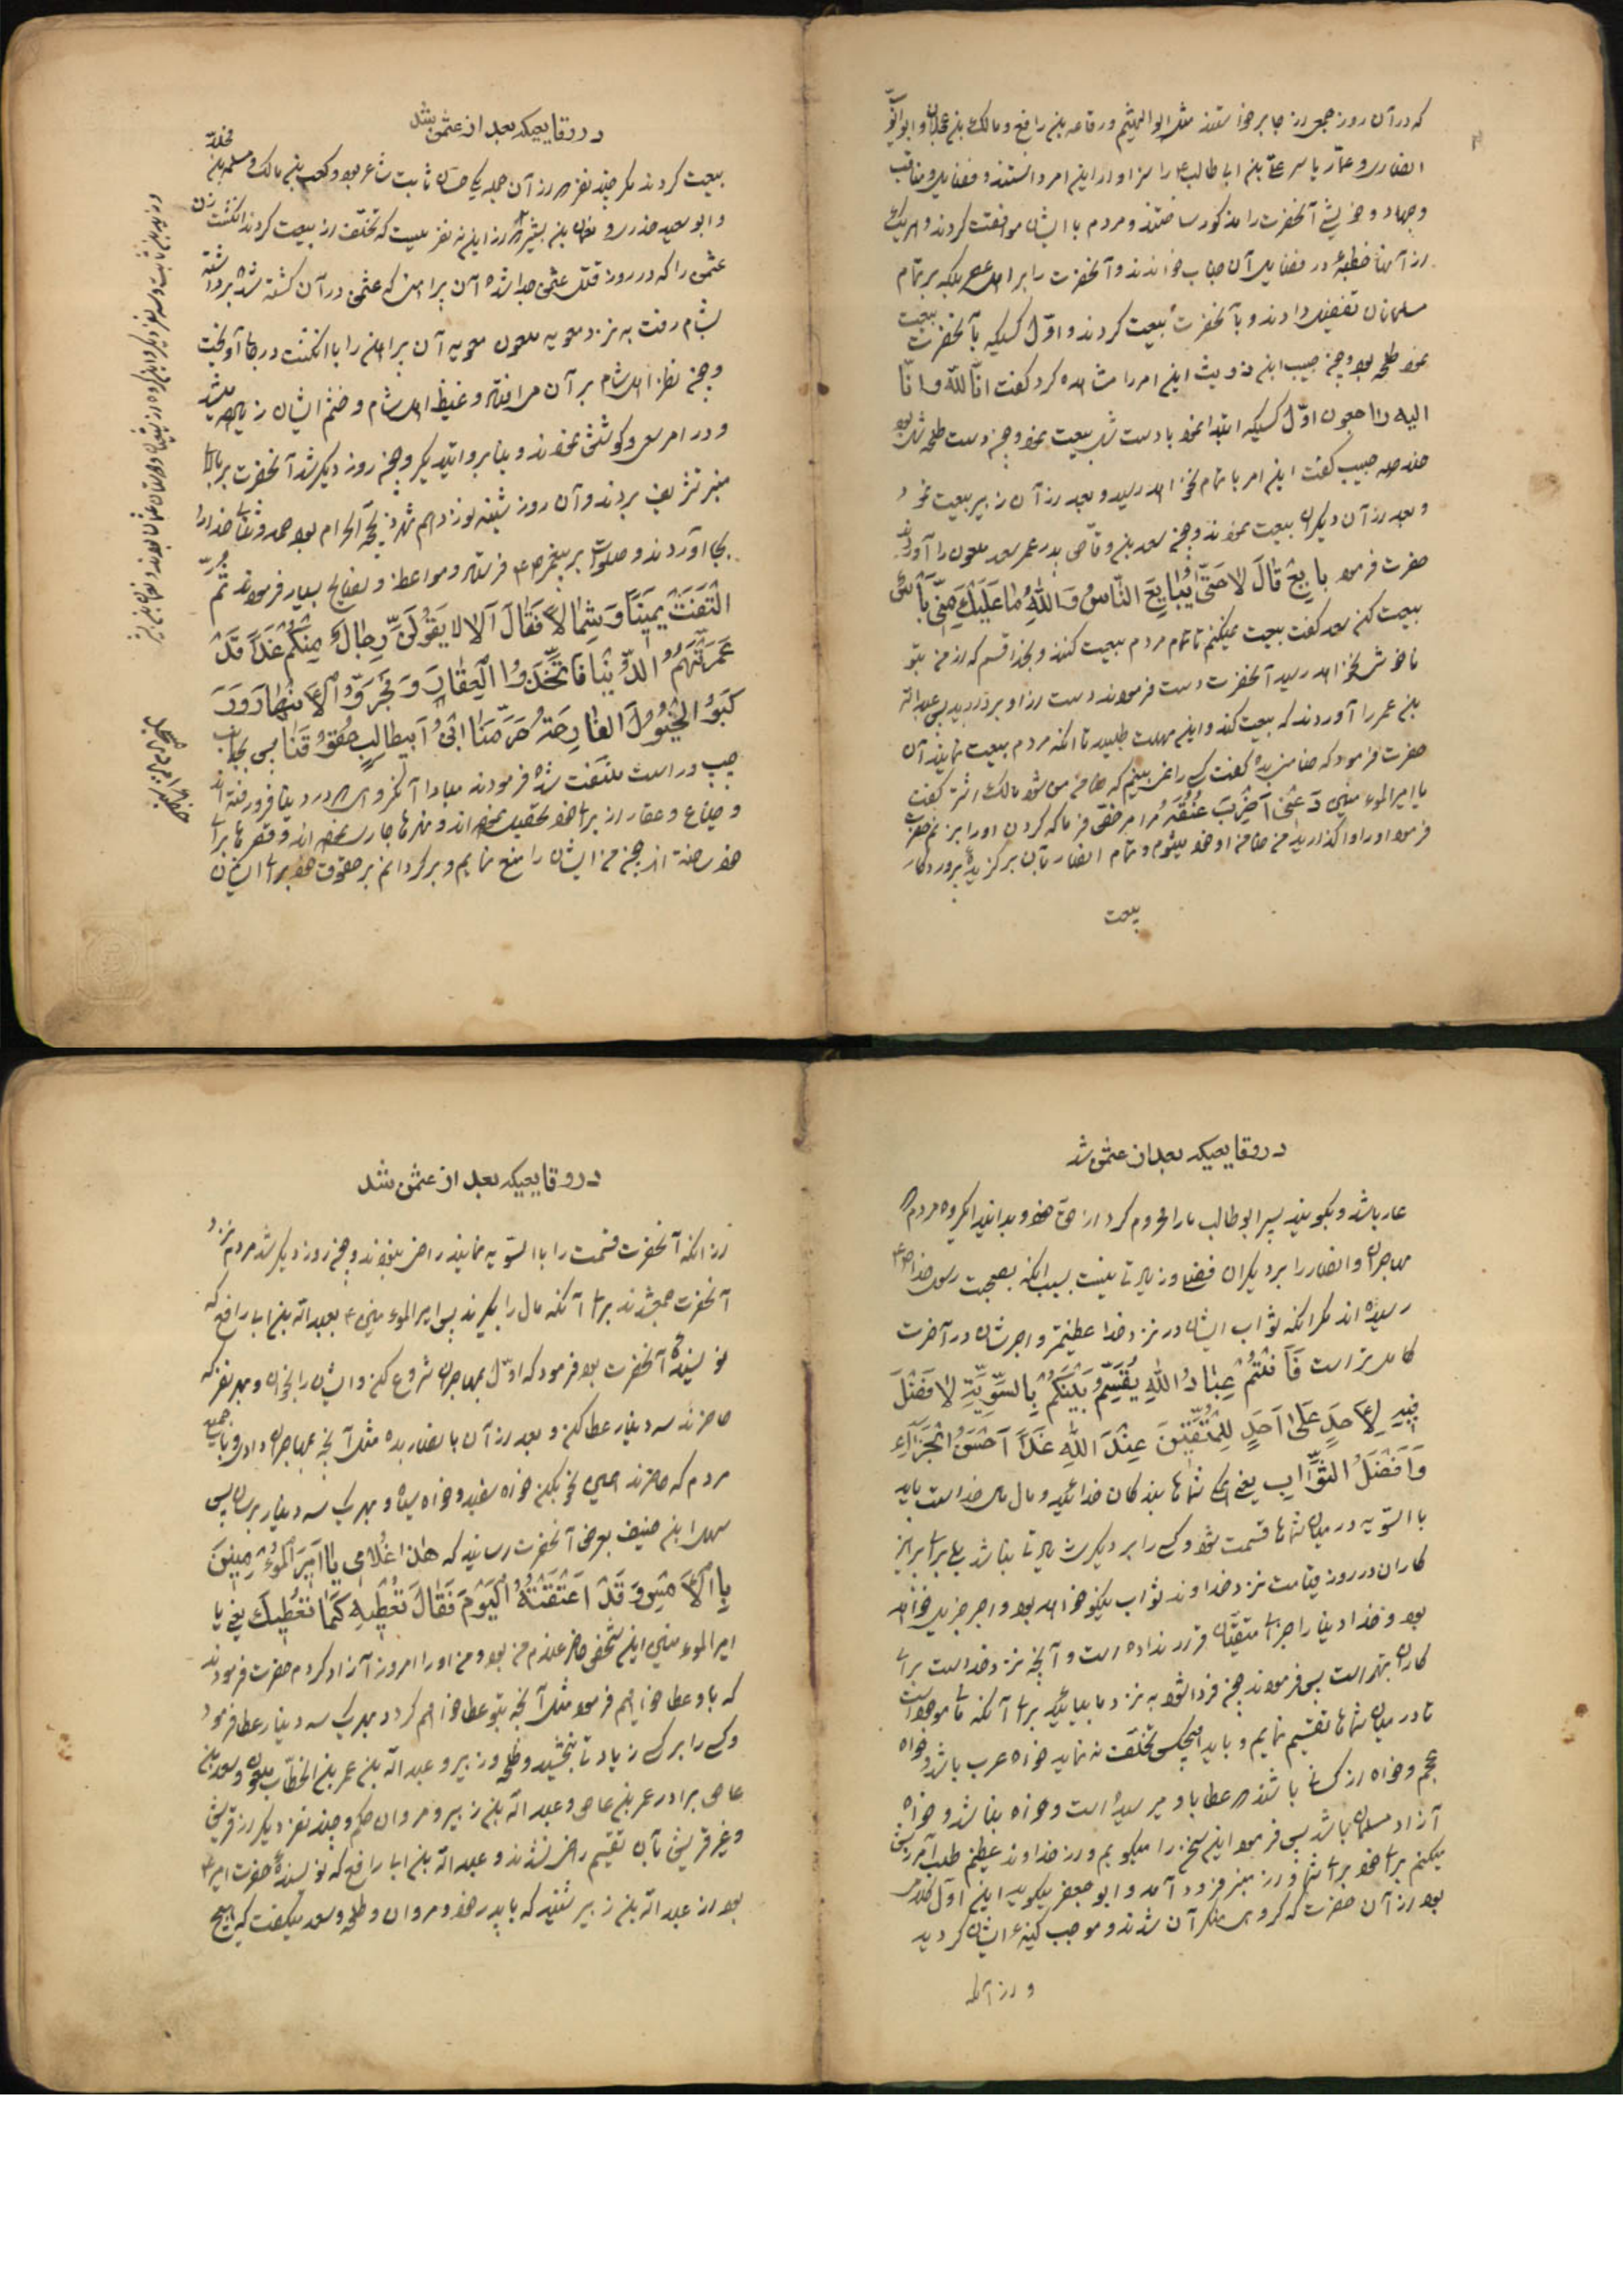 که در آن روز جمع در جا بر خواستند مثل ابو الهیثم و رفاعه بن رافع و مالک بن عجلان و ابو ایوب
انصاری و عمار یاسر علی بن ابا طالب ع را سزاوار این امر دانستند و فضایل و مناقب
و جهاد و خویشی آنحضرت را مذکور ساختند و مردم با ایشان موافقت کردند و هر یک
از آنها خطبهٔ در فضایل آن جناب خواندند و آنحضرت را بر اهل عصر بلکه بر تمام
مسلمانان تفضیل دادند و بآنحضرت بیعت کردند و اوّل کسیکه بآنحضرت بیعت
نمود طلحه بود و چون حبیب ابن ذویب این امر را مشاهده کرد گفت انّا للّه و انّا
الیه راجعون اوّل کسیکه ابتدا نمود با دست شل بیعت نمود و چون دست طلحه شل بود
حبیب گفت این امر با تمام نخواهد رسید و بعد از آن زبیر بیعت نمود
و بعد از آن دیگران بیعت نمودند و چون سعد بن وقاص پدر عمر سعد ملعون را آوردند
حضرت فرمود بایِعْ قالَ لا حَتّی یُبایِعَ النّاسُ وَ اللّهِ ما عَلَیْكَ مِنّی بَأْسٌ
بیعت کن سعد گفت بیعت نمیکنم تا تمام مردم بیعت کنند و بخدا قسم که از من بتو
ناخوشی نخواهد رسید آنحضرت دست فرمودند دست از او بردارید پس عبد اللّه
بن عمر را آوردند که بیعت کند و این مهلت طلبید تا انکه مردم بیعت نمایند آن
حضرت فرمود که ضامن بده گفت کسی را نمی بینم که ضامن من شود مالک اشتر گفت
یا امیر المؤمنین دَعْنی اَضْرِبَ عُنُقَهُ مرا مرخّص فرما که گردن او را بزنم حضرت
فرمود او را واگذارید من ضامن او خود میشوم و تمام انصار بآن برگزیدهٔ پروردگار
بیعت
در وقایعیکه بعد از عثمن شد
بیعت کردند مکر چند نفر از آن جمله یکی حسان ثابت شاعر بود و کعب بن مالک و مسلمه بن مخلّد
و ابو سعید خدری و نعمان بن بشیر از این نه نفر بیست که تخلّف از بیعت کردند انگشت زن
عثمن را که در روز قتل عثمن جدا شده آن پیراهن که عثمن در آن کشته شد برداشته
بشام رفت به نزد معویه ملعون معویه آن پیراهن را با انگشت در جا آویخت
و چون نظر اهل شام بر آن می افتاد و غیظ اهل شام و خشم ایشان زیاده میشد
و در امر سعی و کوشش نمودند و چون روز دیگر شد آنحضرت بر بالای
منبر تشریف بردند و آن روز شنبه نوزدهم شهر ذیحجّه الحرام بود حمد و ثنای خدا را
بجا آوردند و صلوات بر پیغمبر ص فرستاد و مواعظ و نصایح بسیار فرمودند ثُمَّ
الْتَفَتَ یَمیناً وَ شِمالاً فَقالَ اَلا لا یَقُولَنَّ رِجالٌ مِنْکُمْ غَداً قَدْ
غَمَرَتْهُمُ الدُّنْیا فَاتَّخَذُوا الْعِقارَ وَ فَجَرُوا الْاَنْهارَ وَ رَ
کِبُوا الْخُیُولَ الْفارِهَةَ حَرَّمَنا ابْنُ اَبیطالِبٍ حُقُوقَنا پس بجانب
چپ و راست ملتفت شده فرمودند مبادا آنگروهی در دنیا فرو رفته اند
و ضیاع و عقار از برای خود تحصیل نموده اند و نهرها جاری نموده اند و قصرها برای
خود ساخته اند چون من ایشان را منع نمایم و برگردانم بر حقوق خود برای ایشان
خطبه امیر ع
در وقایعیکه بعد از عثمن شد
عار باشد و بگویند پسر ابو طالب ما را محروم کرد از حق خود و بدانید ایگروه مردم
مهاجران و انصار را بر دیگران فضل و زیادتی نیست بسبب انکه بصحبت رسول خدا ص
رسیده اند مکر انکه ثواب ایشان در نزد خدا عظیمتر و اجرشان در آخرت
کامل تر است فَاَنْتُمْ عِبادُ اللّهِ یُقَسَّمُ بَیْنَکُمْ بِالسَّوِیَّةِ لا فَضْلَ
فیهِ لِاَحَدٍ عَلی اَحَدٍ لِلْمُتَّقینَ عِنْدَ اللّهِ غَداً اَحْسَنُ الْجَزاءِ
وَ اَفْضَلُ الثَّوابِ یعنی شماها بندکان خدائید و مال مال خداست باید
با السّویه در میان شماها قسمت شود و کسی را بر دیگری زیادتی نباشد برای پرهیز
کاران در روز قیامت نزد خداوند ثواب نیکو خواهد بود و اجر جزیل خواهد
بود و خدا دنیا را جزای متقیان قرار نداده است و آنچه نزد خداست برای
کاران بهتر است پس فرمودند چون فردا شود به نزد ما بیائید برای آنکه مالی موجود است
تا در میان شماها تقسیم نمایم و باید هیچکس تخلّف نه نماید خواه عرب باشد و خواه
عجم و خواه از کسانی باشند که عطا باو میرسیده است و خواه نباشد و خواه
آزاد مسلمان باشد پس فرمود این سخن را میگویم و از خداوند عظیم طلب آمرزش
میکنم برای خود برای شما و از منبر فرود آمد و ابو جعفر میگوید این اوّل کلام
بود از آن حضرت که گروهی منکر آن شدند و موجب کینهٔ ایشان گردید
و از انکه
در وقایعیکه بعد از عثمن شد
از انکه آنحضرت قسمت را با السّویه نمایند راضی نبودند و چون روز دیگر شد مردم نزد
آنحضرت جمع شدند برای آنکه مال را بگیرند پس امیر المؤمنین ع بعبد اللّه بن ابا رافع که
نویسندهٔ آنحضرت بود فرمود که اوّل بمهاجران شروع کن و ایشان را بخوان و بهر نفر که
حاضرند سه دینار عطا کن و بعد از آن بانصار بده مثل آنچه بمهاجران دادی و با جمیع
مردم که حاضرند همین نحو بکن خواه سفید و خواه سیاه و بهر یک سه دینار برسان پس
سهل ابن حنیف بعرض آنحضرت رسانید که هذا غُلامی یا اَمیرَ الْمُؤْمِنینَ
بِالْاَمْسِ وَ قَدْ اَعْتَقْتُهُ الْیَوْمَ فَقالَ نُعْطیهِ کَما نُعْطیكَ یعنی یا
امیر المؤمنین این شخص حاضر غلام من بود و من او را امروز آزاد کردم حضرت فرمودند
که باو عطا خواهم فرمود مثل آنچه بتو عطا خواهم کرد و بهر یک سه دینار عطا فرمود
و کسی را بر کسی زیادتی نبخشید و طلحه و زبیر و عبد اللّه بن عمر بن الخطّاب ملعون و سعد بن
عاص برادر عمر بن عاص و عبد اللّه بن زبیر و مروان حکم و چند نفر دیگر از قریش
و غیر قریش بآن تقسیم راضی نشدند و عبد اللّه بن ابا رافع که نویسندهٔ حضرت امیر ع
بود از عبد اللّه بن زبیر شنید که با پدر خود و مروان و طلحه و سعد میگفت که